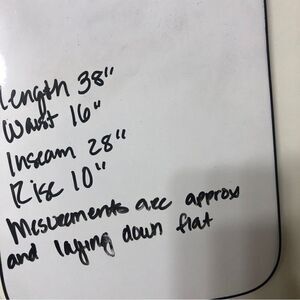 Length 38"
Waist 16"
Inseam 28"
Rise 10"
Mesurements are approx
and laying down flat